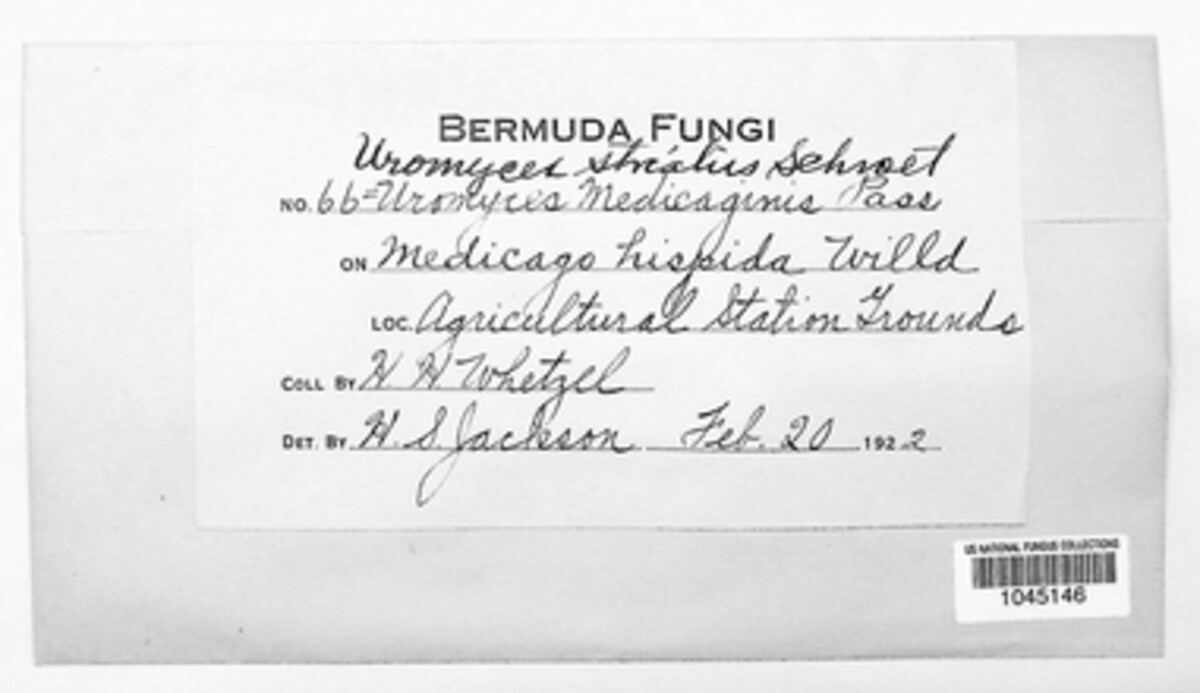 BERMUDA FUNGI
Uromyces striatus Schroet
NO. 66=Uromyces Medicaginis Pass
ON Medicago hispida Willd
LOC. Agricultural Station Grounds
COLL BY H H Whetzel
DET. BY H. S. Jackson Feb. 20 1922
US NATIONAL FUNGUS COLLECTIONS
1045146